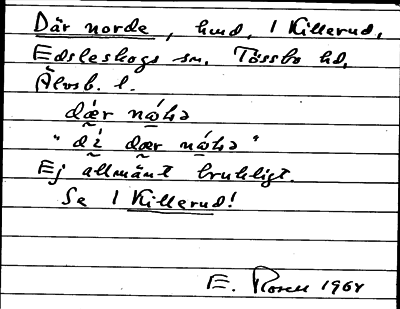 Där norde, hmd, 1 Killerud,
Edsleskogs sn. Tössbo hd,
Älvsb. l.
dær nóhə
"di dær nóhə"
Ej allmänt brukligt.
Se 1 Killerud!
E. Rosell 1964